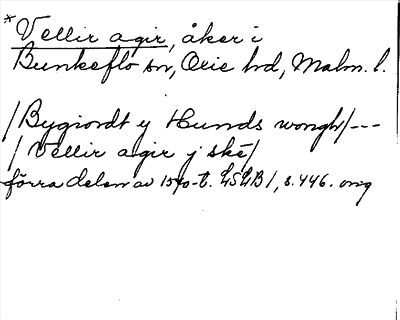 *Vellir agir, åker i
Bunkeflo sn, Oxie hd, Malm. l.
/Bygiordt y Hunds wongh/---
/Vellir agir y ske/
förra delen av 15 -t. LSLB 1, s. 446. omg